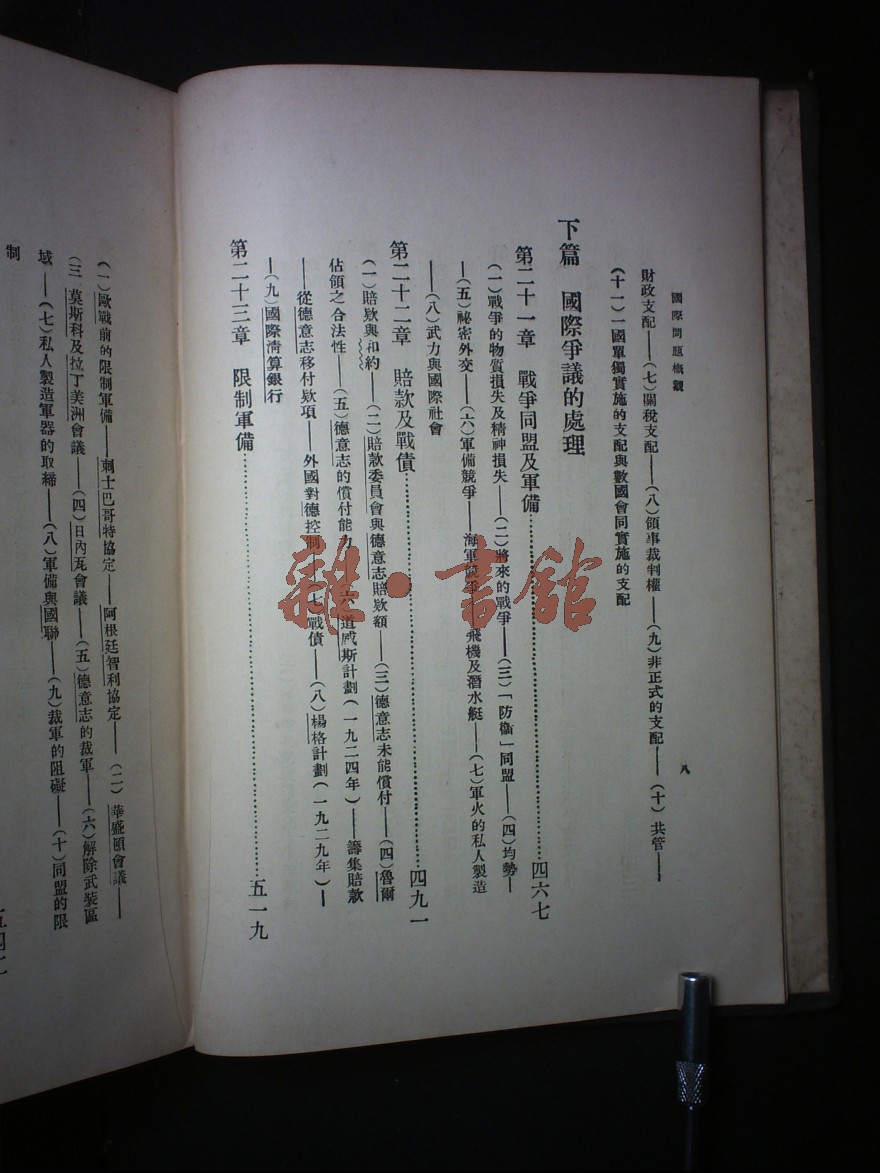 國際問題概觀
八
財政支配——(七)關稅支配——(八)領事裁判權——(九)非正式的支配——(十)共管——
(十一)一國單獨實施的支配與數國會同實施的支配
下篇 國際爭議的處理
第二十一章 戰爭同盟及軍備……四六七
(一)戰爭的物質損失及精神損失——(二)將來的戰爭——(三)「防衞」同盟——(四)均勢—
—(五)祕密外交——(六)軍備競爭——海軍競爭——飛機及潛水艇——(七)軍火的私人製造
——(八)武力與國際社會
第二十二章 賠款及戰債……四九一
(一)賠欵與和約——(二)賠欵委員會與德意志賠欵額——(三)德意志未能償付——(四)魯爾
佔領之合法性——(五)德意志的償付能力——(六)道威斯計劃(一九二四年)——籌集賠款
——從德意志移付欵項——外國對德控制——(七)戰債——(八)楊格計劃(一九二九年)—
—(九)國際清算銀行
第二十三章 限制軍備……五一九
(一)歐戰前的限制軍備——剌士巴哥特協定——阿根廷智利協定——(二)華盛頓會議——
(三)莫斯科及拉丁美洲會議——(四)日內瓦會議——(五)德意志的裁軍——(六)解除武裝區
域——(七)私人製造軍器的取締——(八)軍備與國聯——(九)裁軍的阻礙——(十)同盟的限
制
雜·書館